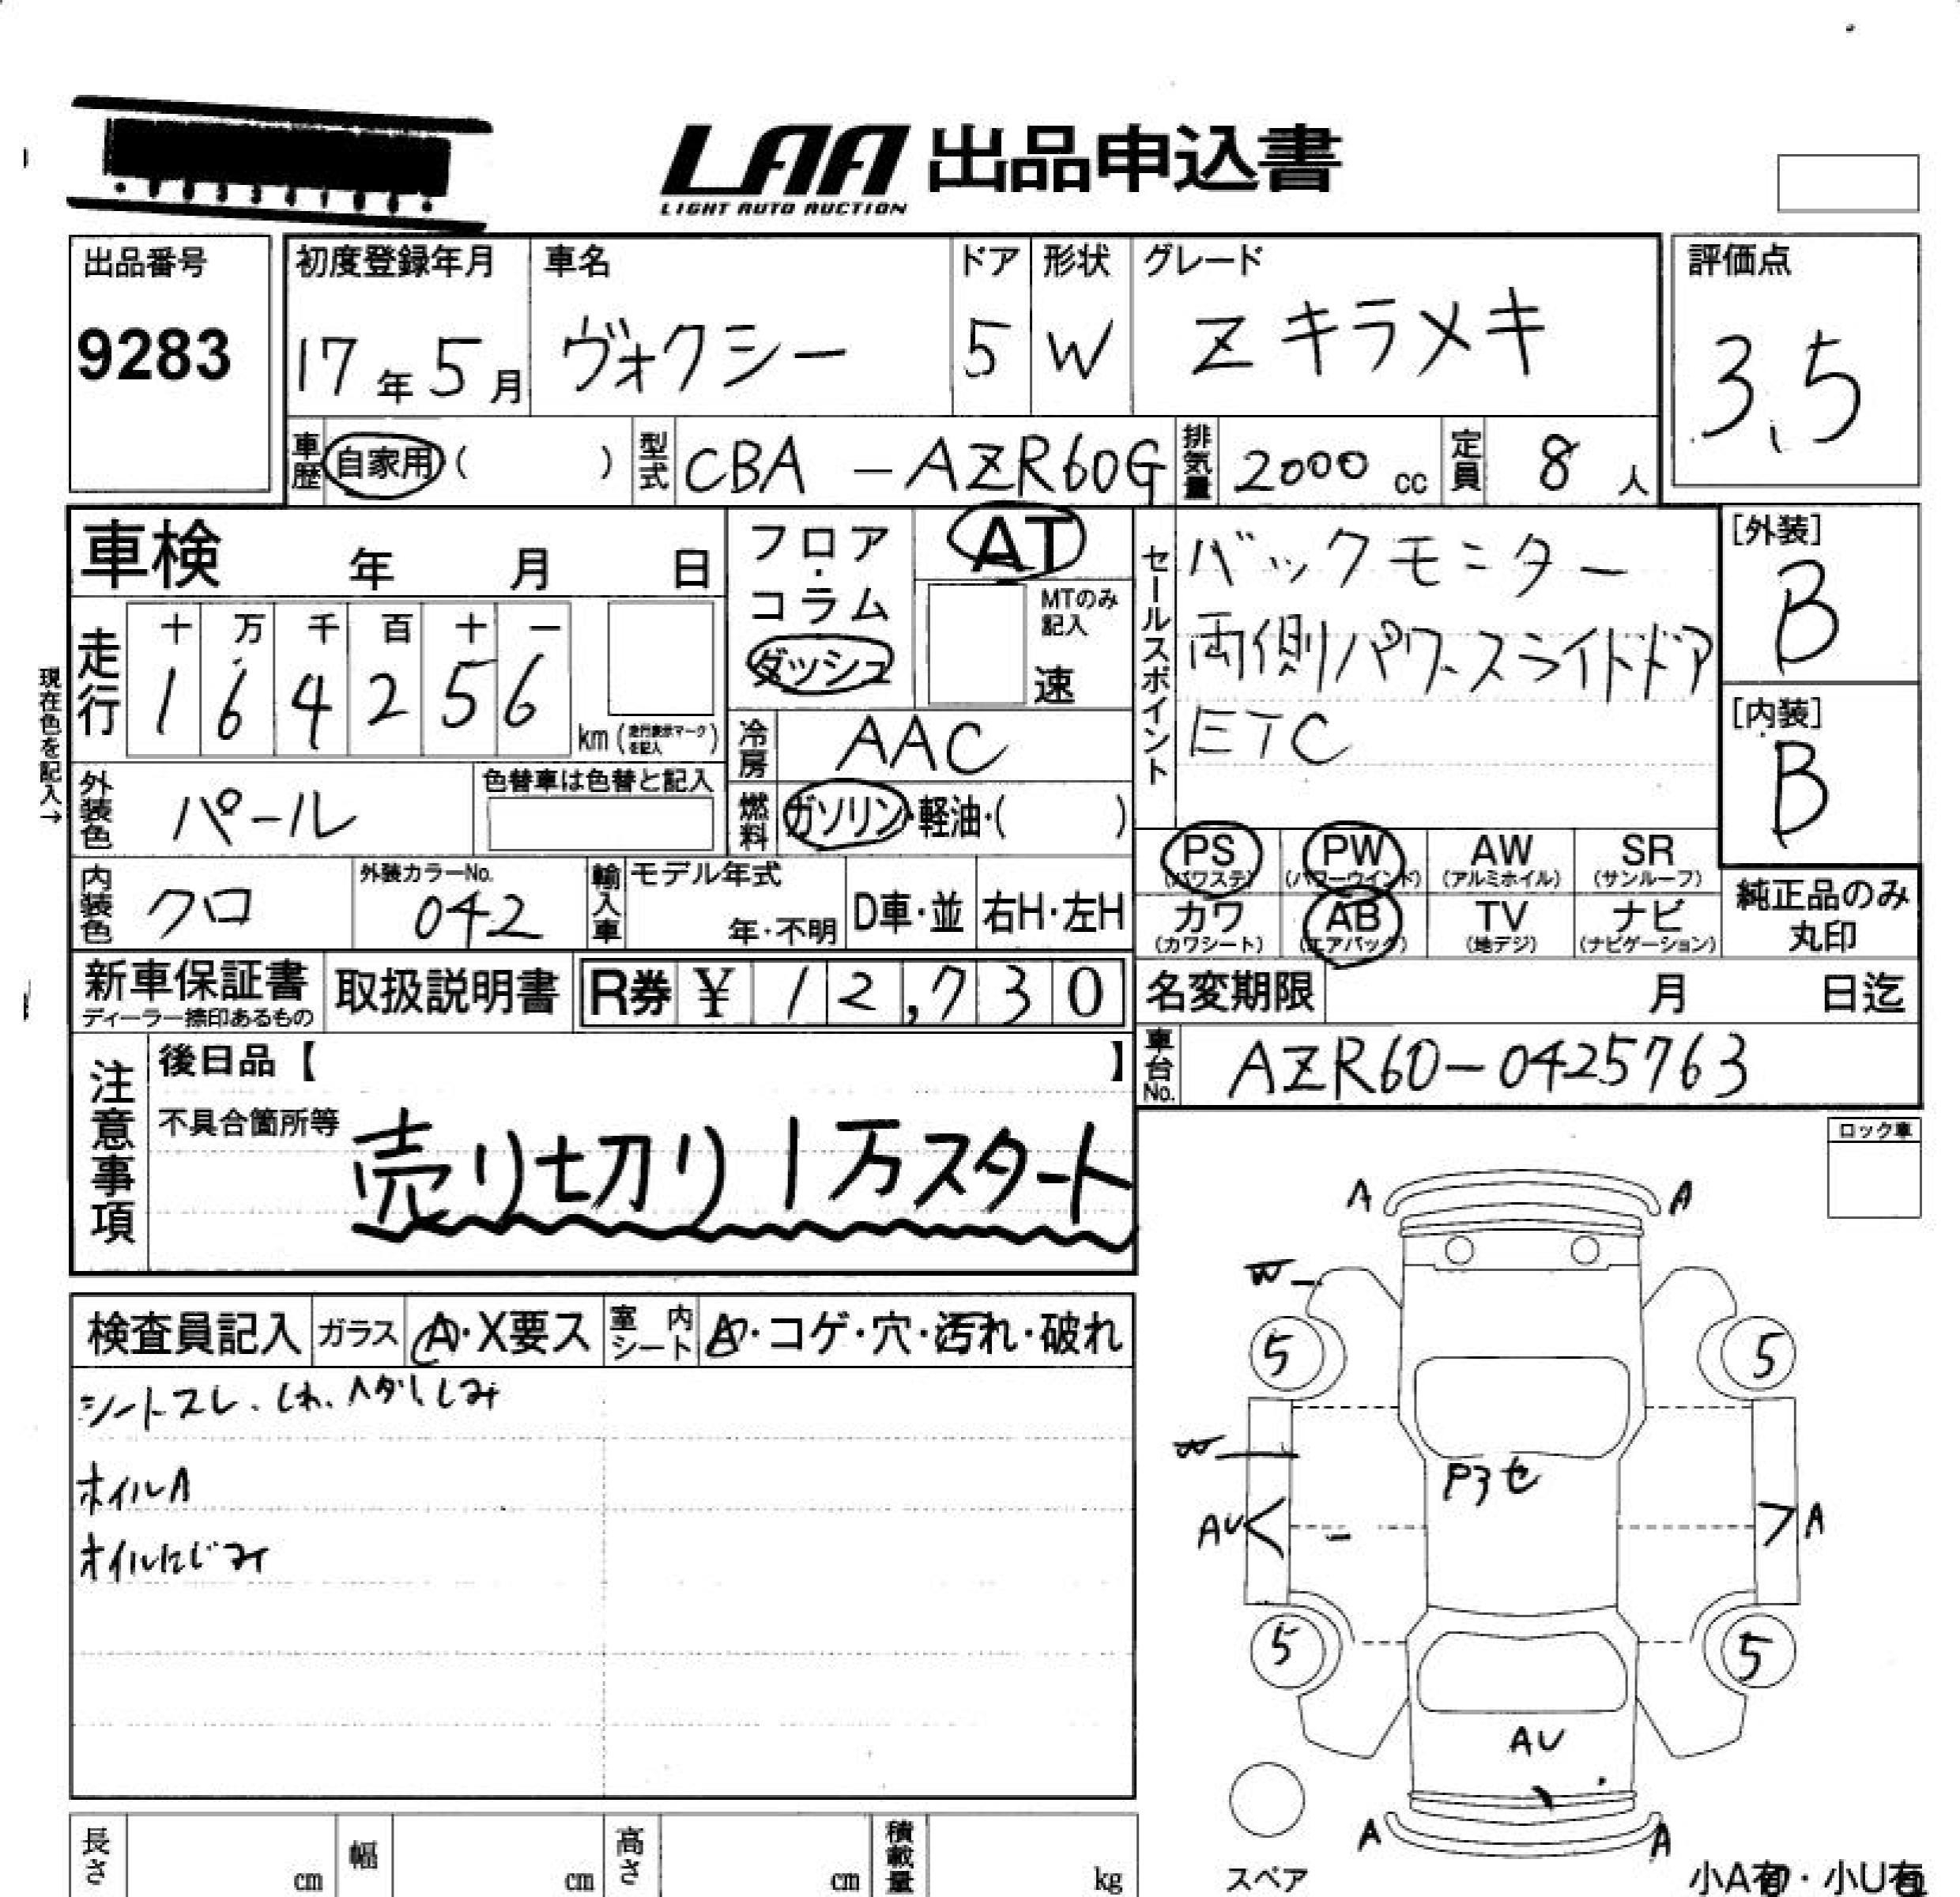 LAA 出品申込書
LIGHT AUTO AUCTION
出品番号
9283
初度登録年月
17年5月
車名
ヴォクシー
ドア
5
形状
W
グレード
Zキラメキ
評価点
3.5
車歴 自家用 ( )
型式 CBA-AZR60G
排気量 2000 cc
定員 8 人
車検 年 月 日
フロア・コラム
ダッシュ
AT
MTのみ記入
速
セールスポイント
バックモニター
両側パワースライドドア
ETC
[外装]
B
[内装]
B
走行
十 万 千 百 十 一
1 6 4 2 5 6
km (走行表示マークを記入)
現在色を記入→
冷房 AAC
外装色 パール
色替車は色替と記入
燃料 ガソリン・軽油・( )
PS
(パワステ)
PW
(パワーウインド)
AW
(アルミホイル)
SR
(サンルーフ)
カワ
(カワシート)
AB
(エアバック)
TV
(地デジ)
ナビ
(ナビゲーション)
純正品のみ
丸印
内装色 クロ
外装カラーNo.
042
輸入車 モデル年式
年・不明
D車・並
右H・左H
新車保証書
ディーラー捺印あるもの
取扱説明書
R券 ¥ 12,730
名変期限 月 日迄
車台No. AZR60-0425763
注意事項
後日品【 】
不具合箇所等
売り切り1万スタート
ロック車
検査員記入
ガラス A・X要ス
室内シート A・コゲ・穴・汚れ・破れ
シートスレ、しわ、ヘタリ、しみ
ホイルA
オイルにじみ
A A
W
5 5
W
P3セ
AU A
5 5
AU
A A
スペア
小A有・小U有
長さ cm
幅 cm
高さ cm
積載量 kg